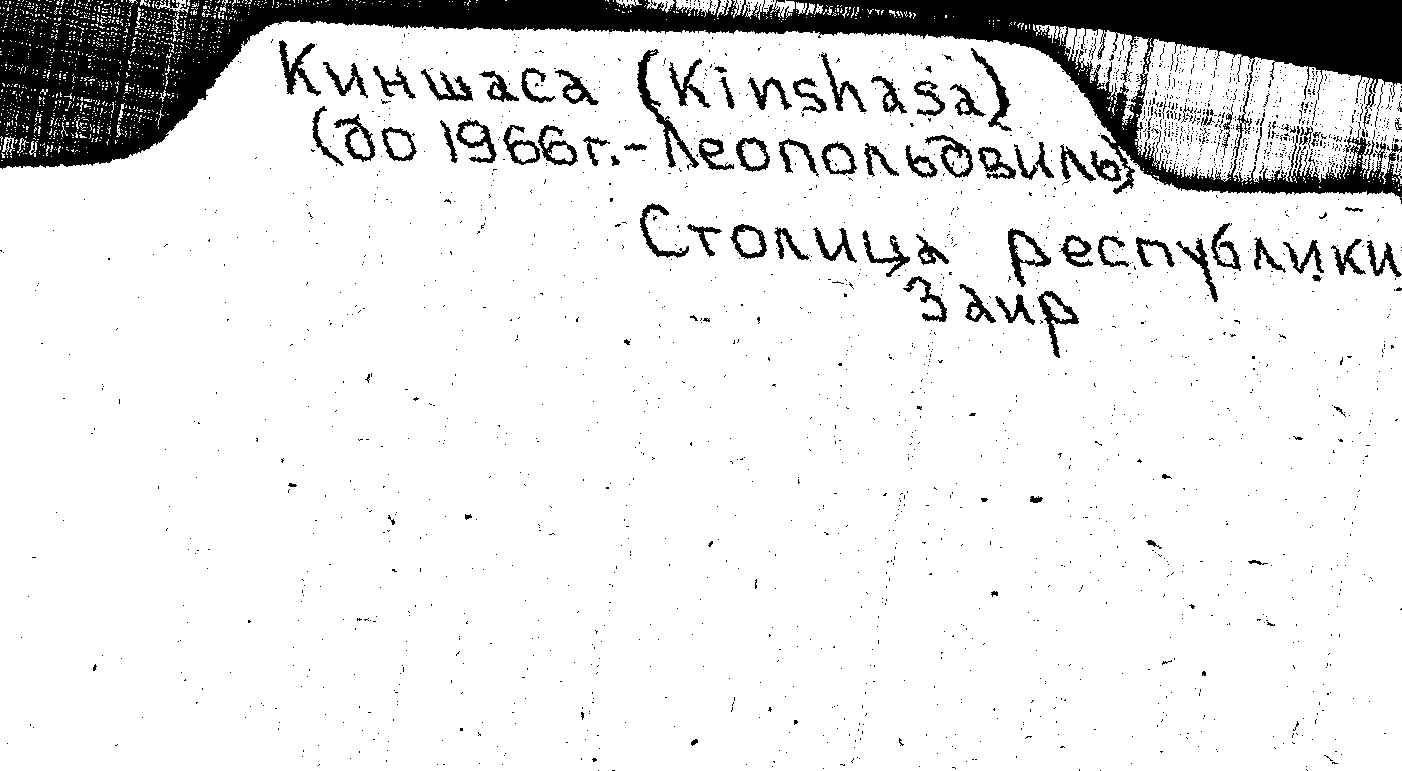 Киншаса (Kinshasa)
(до 1966г.-Леопольдвиль)
Столица республики
Заир